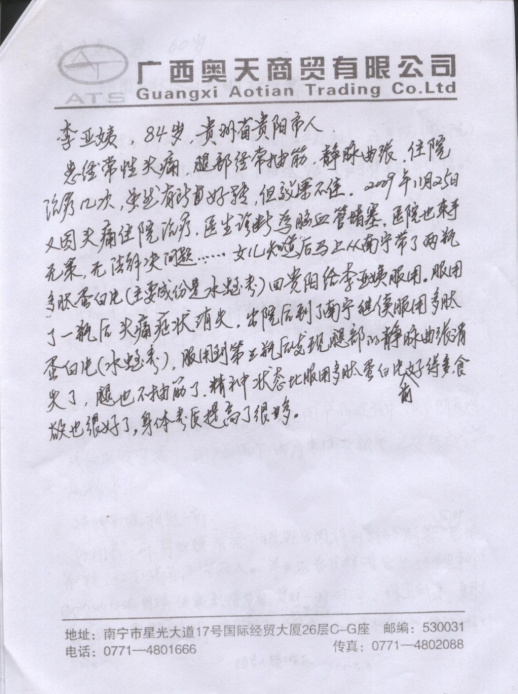 ATS
广西奥天商贸有限公司
Guangxi Aotian Trading Co.Ltd
李亚姨，84岁，贵州省贵阳市人
患经常性头痛，腿部经常抽筋，静脉曲张，住院
治疗几次，虽然有时有好转，但效果不佳。2009年11月25日
又因头痛住院治疗，医生诊断为脑血管堵塞，医院也束手
无策，无法解决问题……女儿知道后马上从南宁带了两瓶
多肽蛋白片(主要成份是水蛭素)回贵阳给李亚姨服用。服用
了一瓶后头痛症状消失，出院后到了南宁继续服用多肽
蛋白片(水蛭素)，服用到第五瓶后发现腿部的静脉曲张消
失了，腿也不抽筋了，精神状态比服用多肽蛋白片前好得多食
欲也很好了，身体素质提高了很多。
地址：南宁市星光大道17号国际经贸大厦26层C-G座 邮编：530031
电话：0771—4801666 传真：0771—4802088